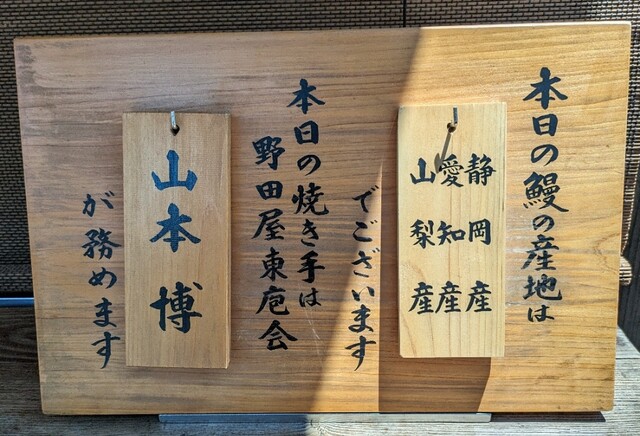 本日の鰻の産地は
静岡産
愛知産
山梨産
でございます
本日の焼き手は
野田屋東庖会
山本博
が務めます